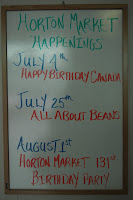 HORTON MARKET
HAPPENINGS
JULY 4th
HAPPY BIRTHDAY CANADA
JULY 25th
ALL ABOUT BEANS
AUGUST 1st
HORTON MARKET 131st
BIRTHDAY PARTY